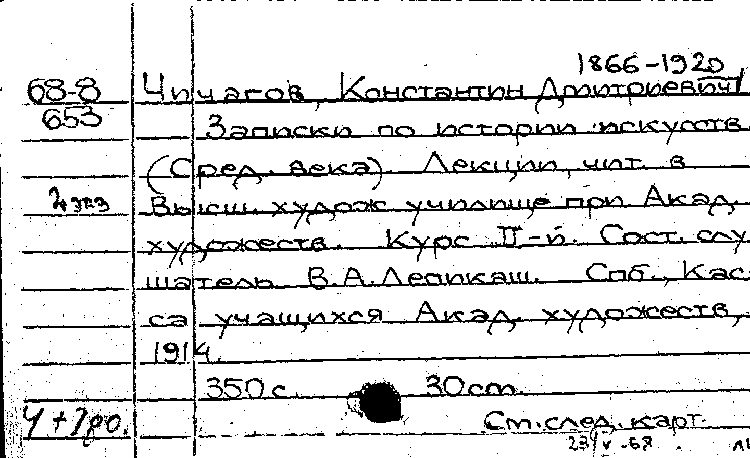 1866-1920
68-8 Чичагов, Константин Дмитриевич
653 Записки по истории искусств
(Сред. века). Лекции, чит. в
2 экз Высш. худож училище при Акад.
художеств. Курс II-й. Сост. слу
шатель В.А.Лепикаш. Спб., Кас-
са учащихся Акад. художеств,
1914.
350 с. 30 cm.
Ч
См. след. карт.
68